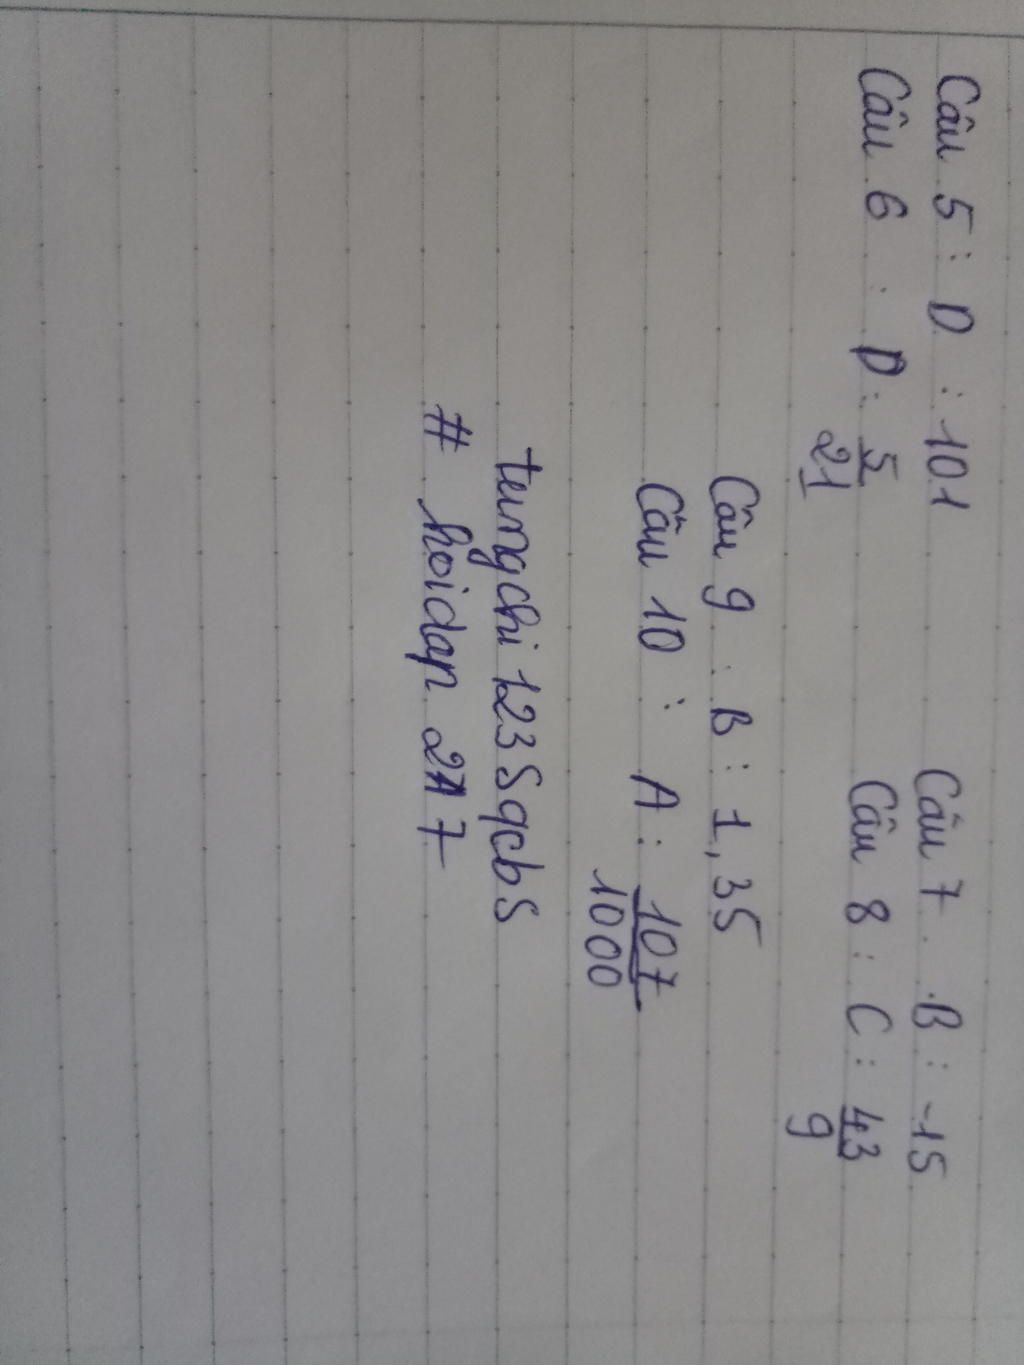 Câu 5 : D : 101
Câu 6 : D : 5/21
Câu 7 : B : -15
Câu 8 : C : 43/9
Câu 9 : B : 1,35
Câu 10 : A : 107/1000
tungchi123sqcbs
# hoidap247